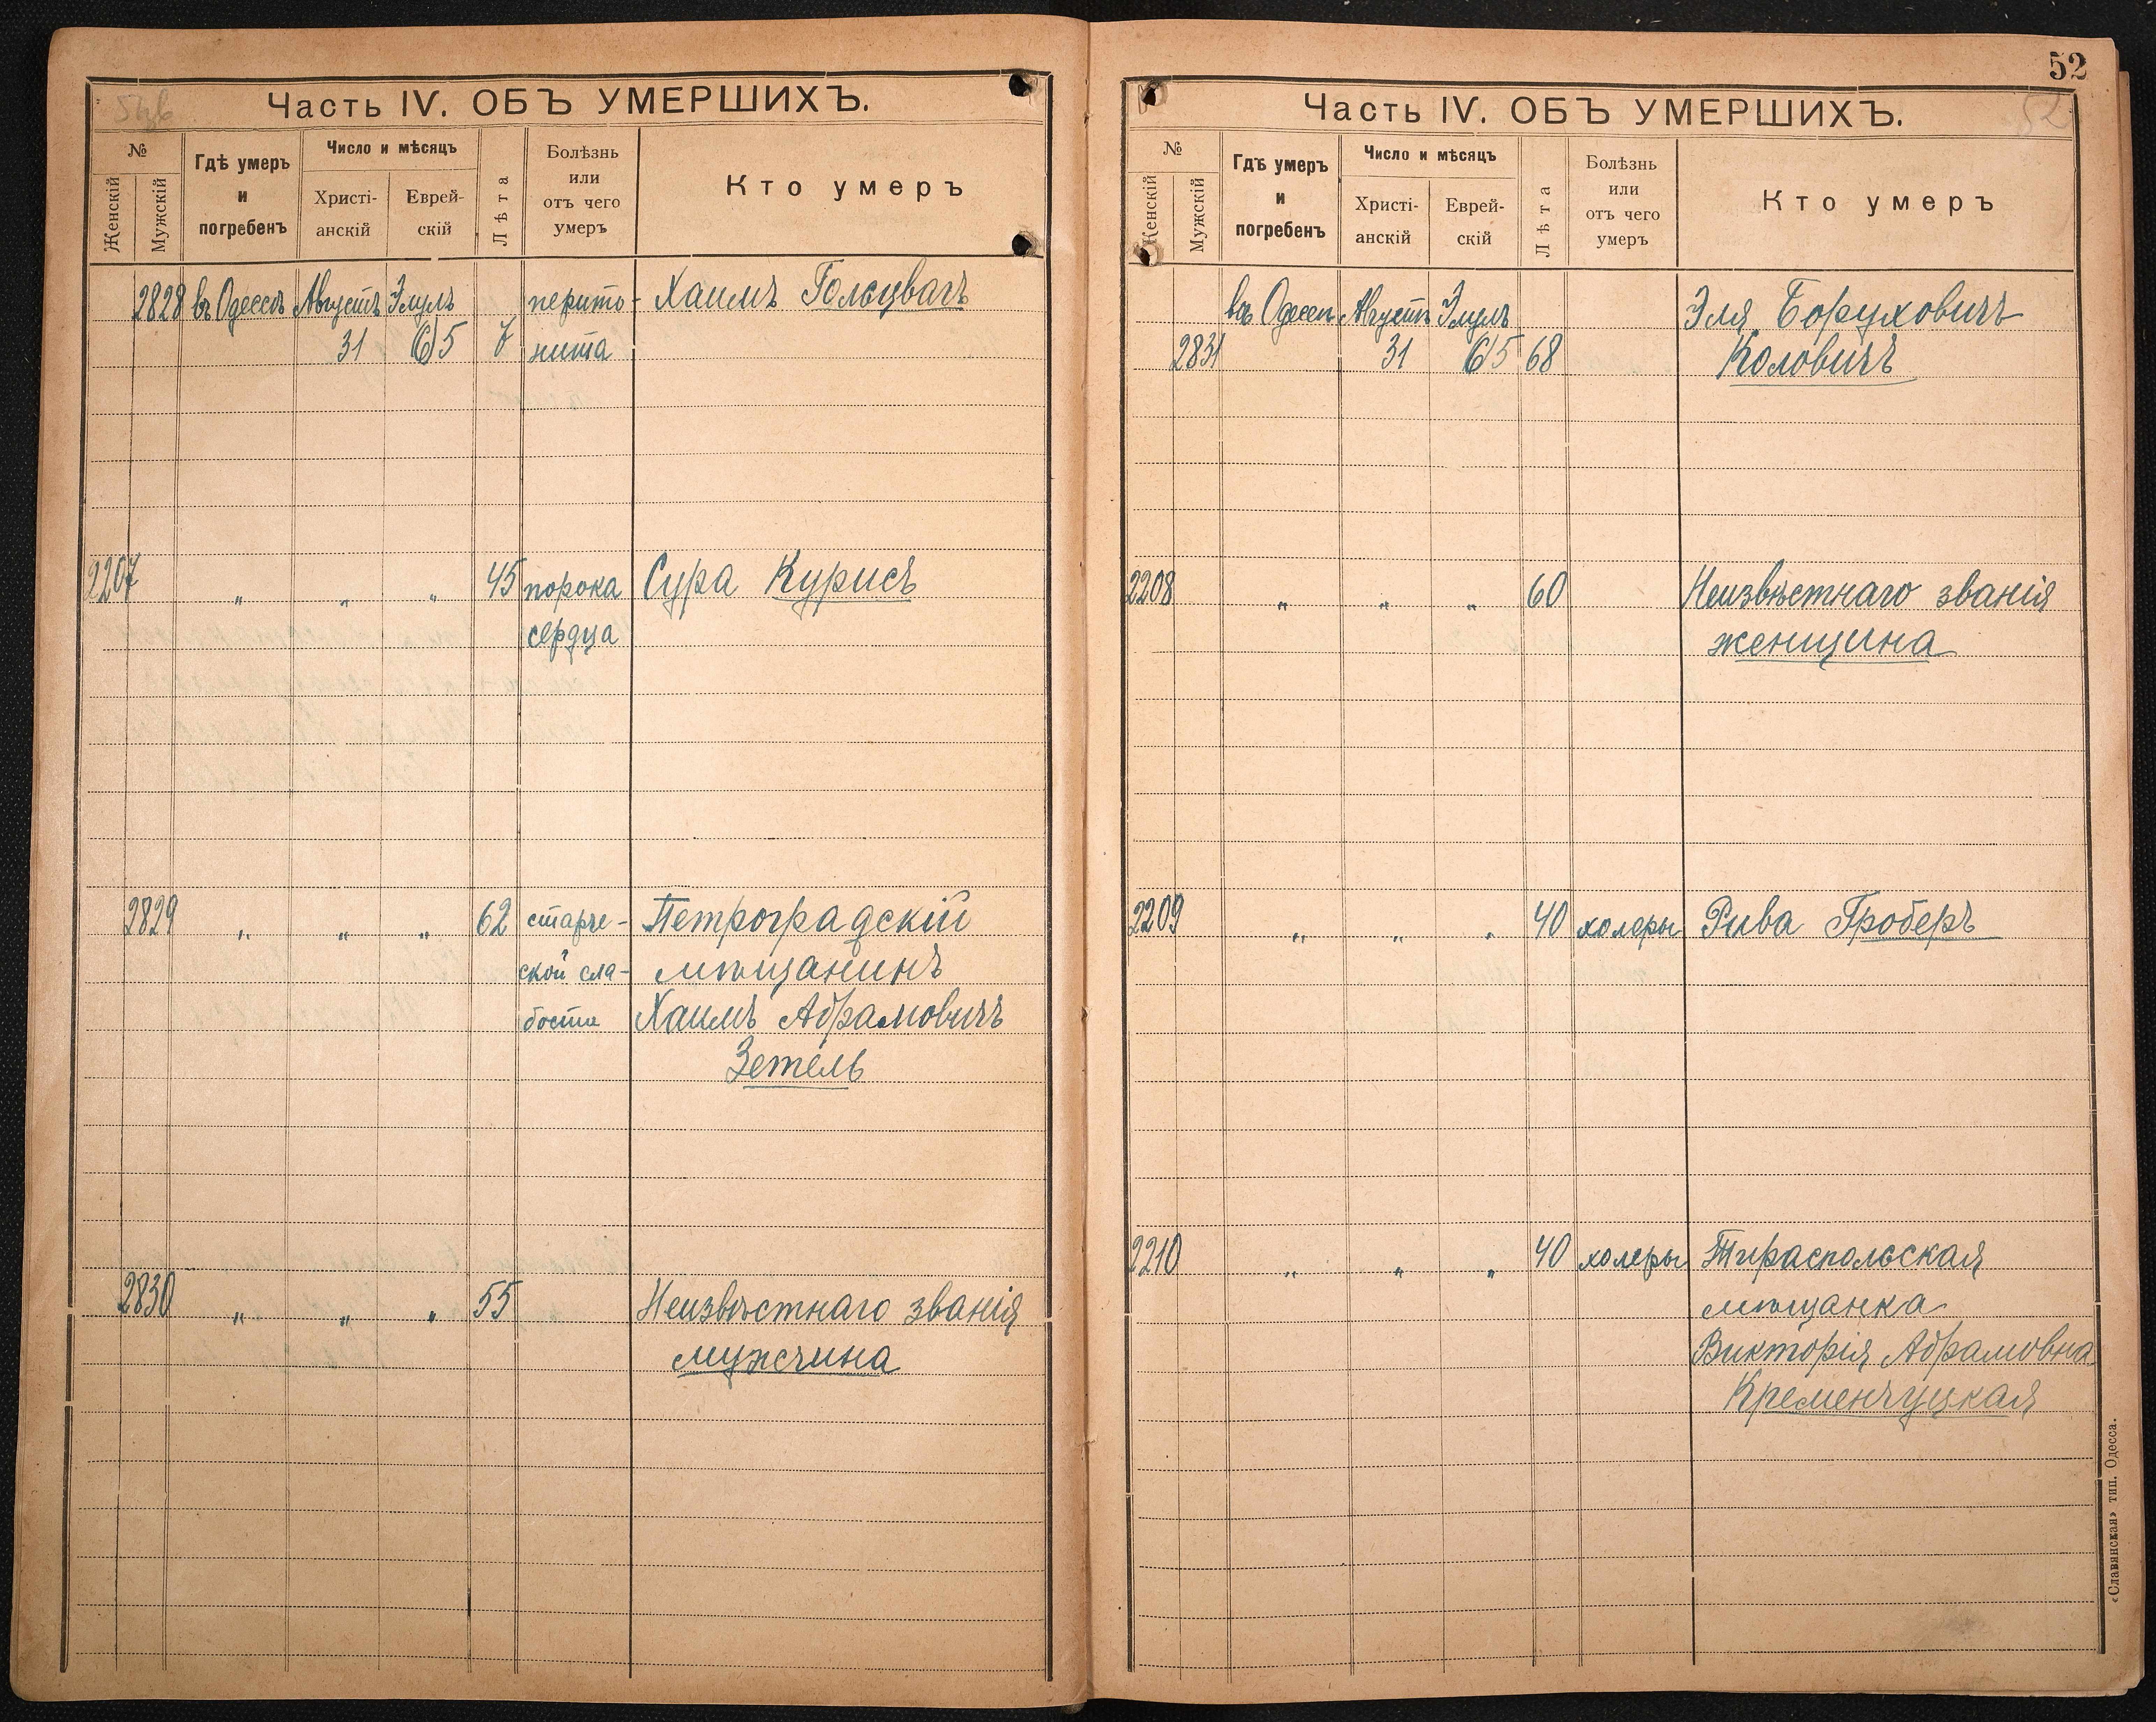 Часть IV. ОБЪ УМЕРШИХЪ.
№
Женскій
Мужскій
Гдѣ умеръ
и
погребенъ
Число и мѣсяцъ
Христі-
анскій
Еврей-
скій
Лѣта
Болѣзнь
или
отъ чего
умеръ
Кто умеръ
2828 въ Одессѣ Августъ Элулъ перито- Хаимъ
31 5 7 нита
2207 „ „ „ 45 порока Сура Курисъ
сердца
2829 „ „ „ 62 старче- Петроградскій
ской сла- мѣщанинъ
бости Хаимъ Абрамовичъ
Зетель
2830 „ „ „ 55 Неизвѣстнаго званія
мужчина
52
52
Часть IV. ОБЪ УМЕРШИХЪ.
№
Женскій
Мужскій
Гдѣ умеръ
и
погребенъ
Число и мѣсяцъ
Христі-
анскій
Еврей-
скій
Лѣта
Болѣзнь
или
отъ чего
умеръ
Кто умеръ
въ Одессѣ Августъ Элулъ Эля Боруховичъ
2831 31 5 68 Коловичъ
2208 „ „ „ 60 Неизвѣстнаго званія
женщина
2209 „ „ „ 40 холеры Рива Гроберъ
2210 „ „ „ 40 холеры Тираспольская
мѣщанка
Викторія Абрамовна
Кременчуцкая
«Славянская» тип. Одесса.